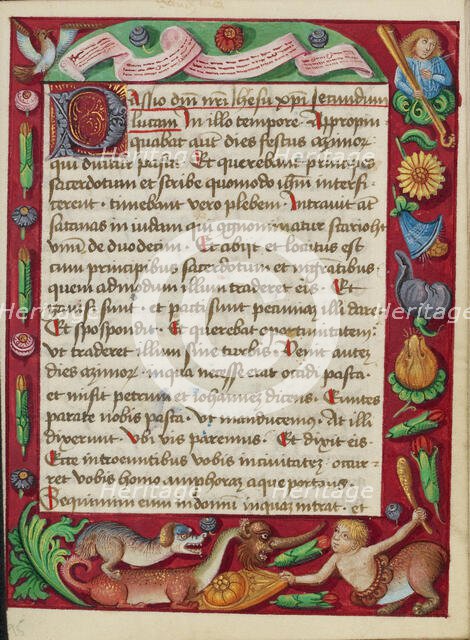 Passio dni nri Ihesu xpi secundum
lucam In illo tempore Appropin
quabat aut dies festus azimoz
qui dicitur pascha Et querebant principes
sacerdotum et scribe quomodo ihm interfi
cerent timebant vero plebem Intrauit aut
satanas in iudam qui cognominatur scarioth
vnus de duodecim Et abijt et locutus est
cum principibus sacerdotum et mgratibus
quem admodum illum traderet eis Et
gauisi sunt et pactisunt pecuniaz illi dare
Et spospondit Et querebat oportunitatem
vt traderet illum sine turbis Venit autez
dies azimoz inqua necesse erat occidi pasca
et misit petrum et Iohannez dicens Euntes
parate nobis pasca vt manducemus At illi
dixerunt Vbi vis paremus Et dixit eis
Ecce introeuntibus vobis inciuitatez occur
ret vobis homo amphoraz aque portans
Sequimini eum in domu inquaz intrat et
Heritage